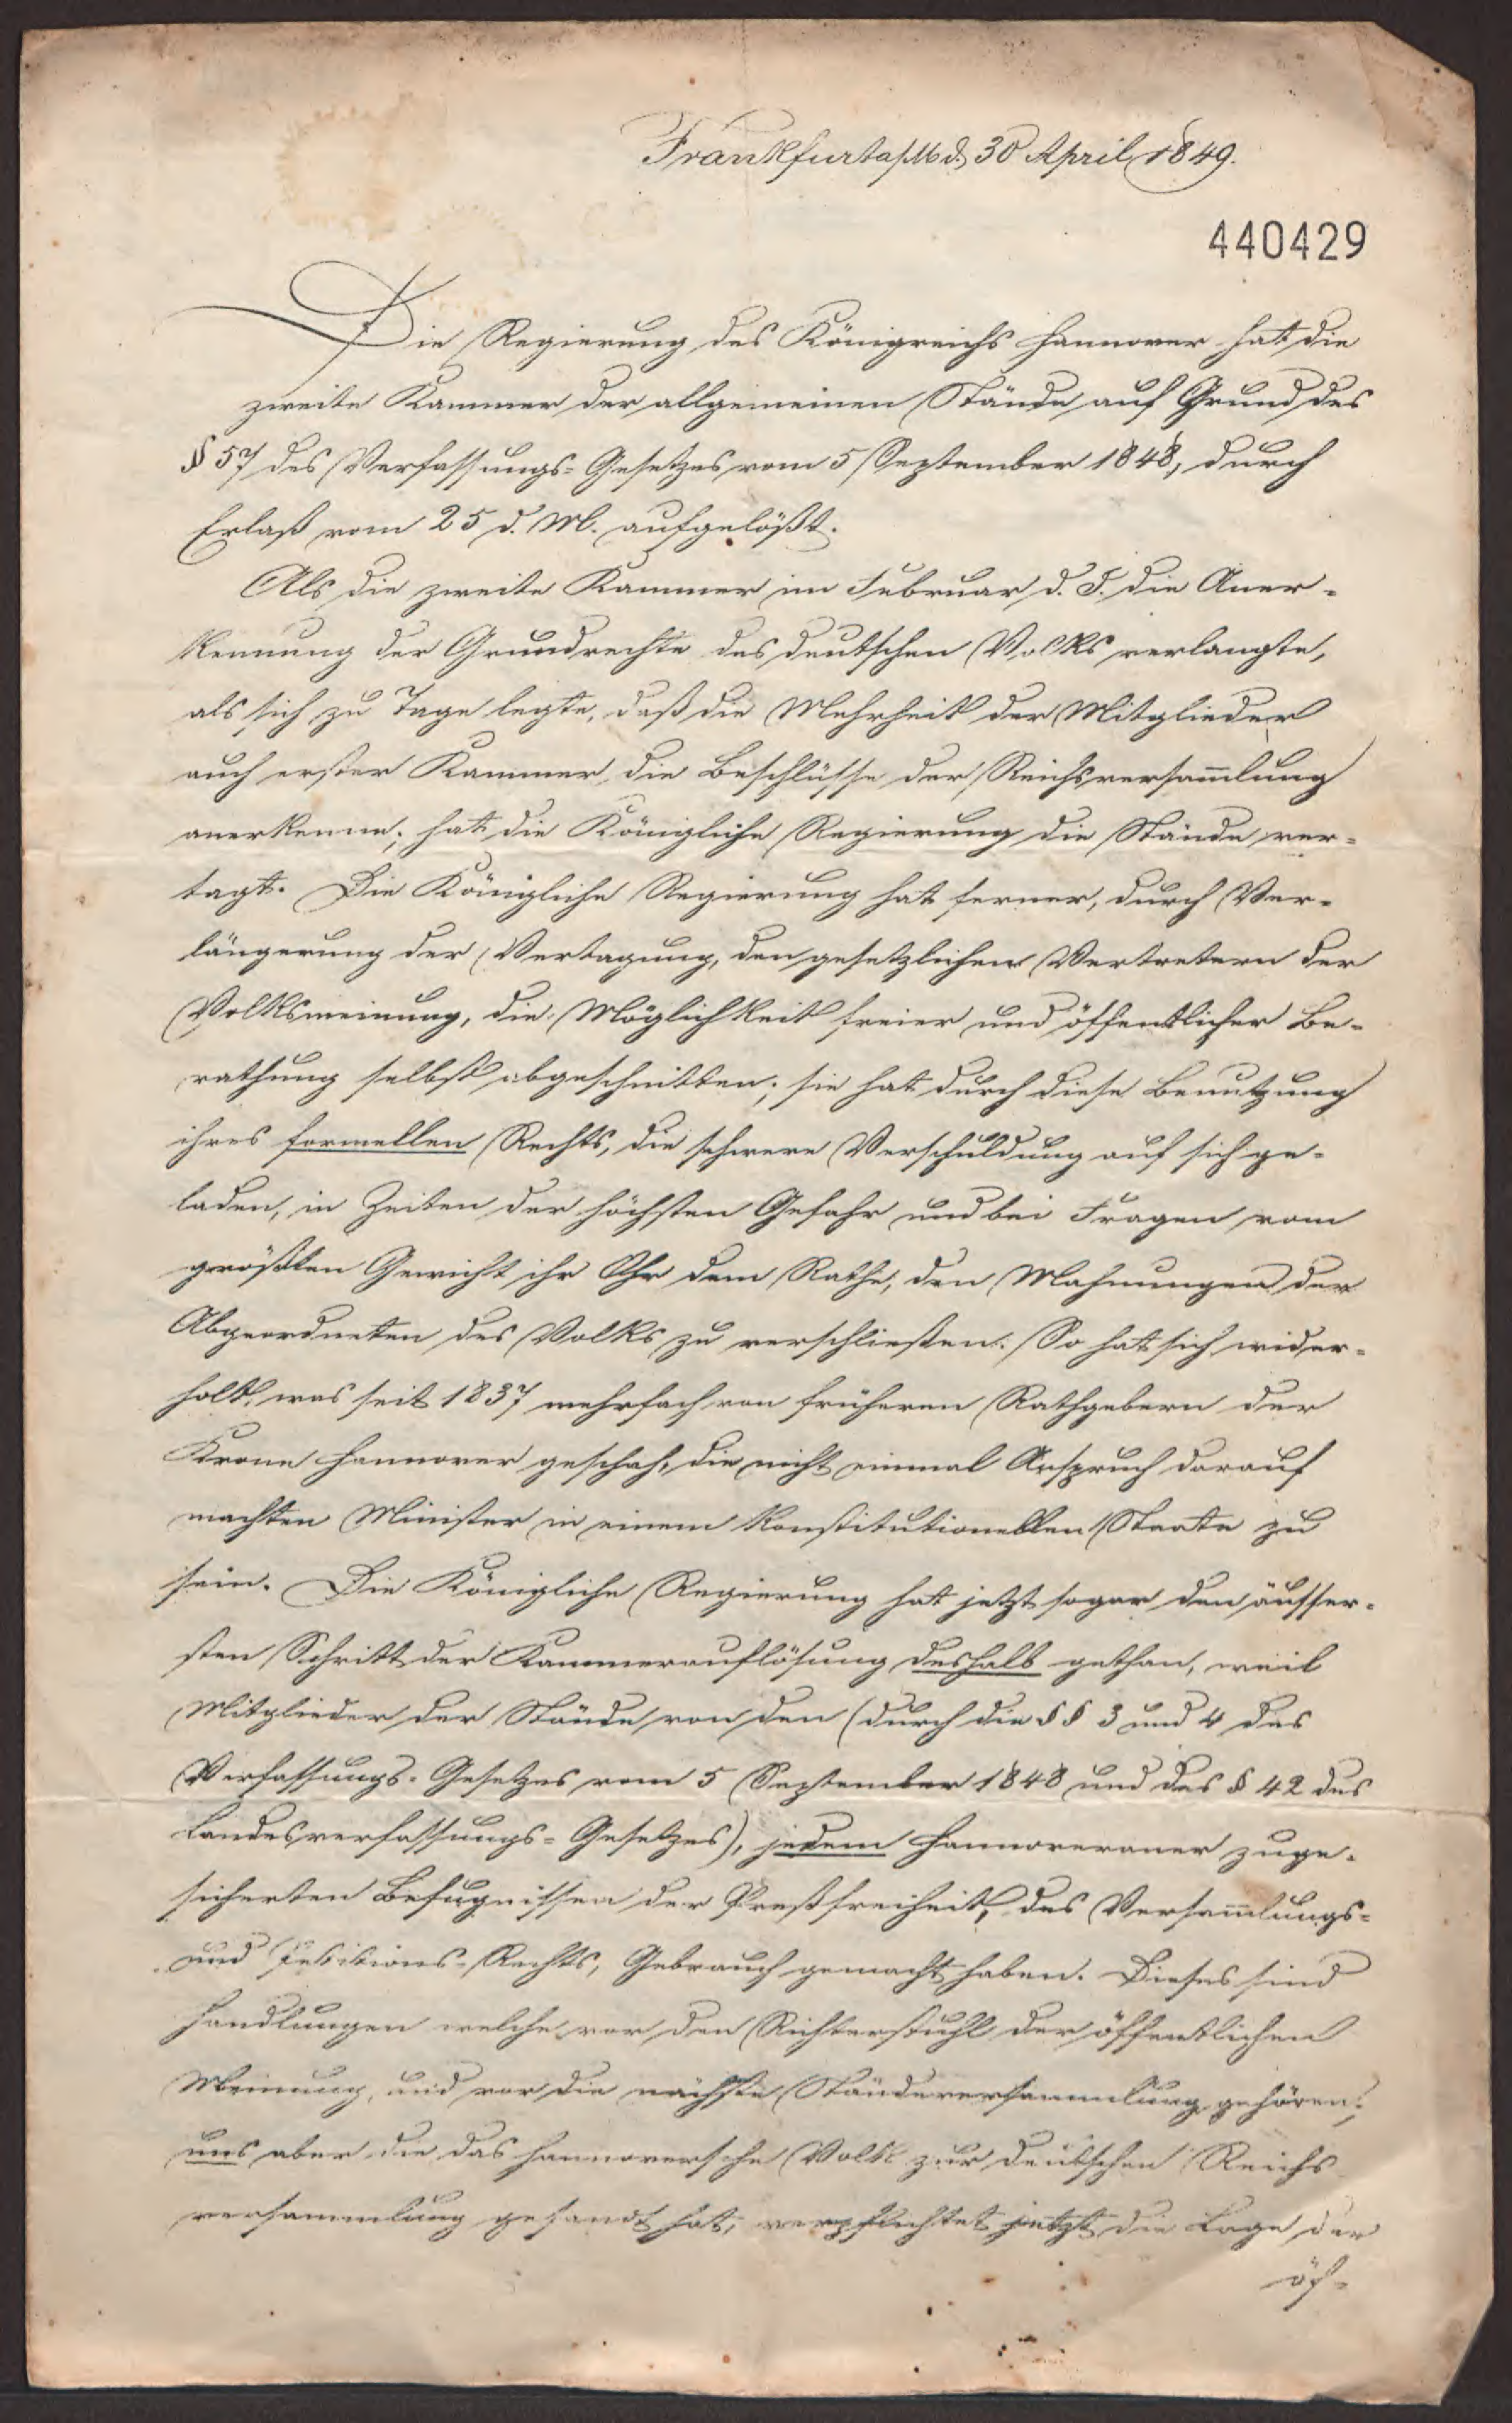 Frankfurt a/M d. 30 April 1849.
440429
Die Regierung des Königreichs Hannover hat die
zweite Kammer der allgemeinen Stände auf Grund des
§ 57 des Verfassungs-Gesetzes vom 5 September 1848, durch
Erlaß vom 25 d. M. aufgelößt.
Als die zweite Kammer im Februar d. J. die Aner-
kennung der Grundrechte des deutschen Volks verlangte,
als sich zu Tage legte, daß die Mehrheit der Mitglieder
auch erster Kammer die Beschlüsse der Reichsversam̄lung
anerkenne; hat die Königliche Regierung die Stände ver-
tagt. Die Königliche Regierung hat ferner, durch Ver-
längerung der Vertagung, den gesetzlichen Vertretern der
Volksmeinung, die Möglichkeit freier und öffentlicher Be-
rathung selbst abgeschnitten; sie hat durch diese Benutzung
ihres formellen Rechts, die schwere Verschuldung auf sich ge-
laden, in Zeiten der höchsten Gefahr und bei Fragen vom
größten Gewicht ihr Ohr dem Rathe, den Mahnungen der
Abgeordneten des Volks zu verschließen. So hat sich wider-
holt, was seit 1837 mehrfach von früheren Rathgebern der
Krone Hannover geschah, die nicht einmal Anspruch darauf
machten Minister in einem konstitutionellen Staate zu
sein. Die Königliche Regierung hat jetzt sogar den äusser-
sten Schritt der Kammerauflösung deshalb gethan, weil
Mitglieder der Stände von den (durch die §§ 3 und 4 des
Verfassungs-Gesetzes vom 5 September 1848 und des § 42 des
Landesverfassungs-Gesetzes), jedem Hannoveraner zuge-
sicherten Befugnissen der Preßfreiheit, des Versam̄lungs-
und Petitions-Rechts, Gebrauch gemacht haben. Dieses sind
Handlungen welche vor den Richterstuhl der öffentlichen
Meinung, und vor die nächste Ständeversammlung gehören;
uns aber die das hannoversche Volk zur deutschen Reichs
versammlung gesandt hat, verpflichtet jetzt die Lage der
öf-